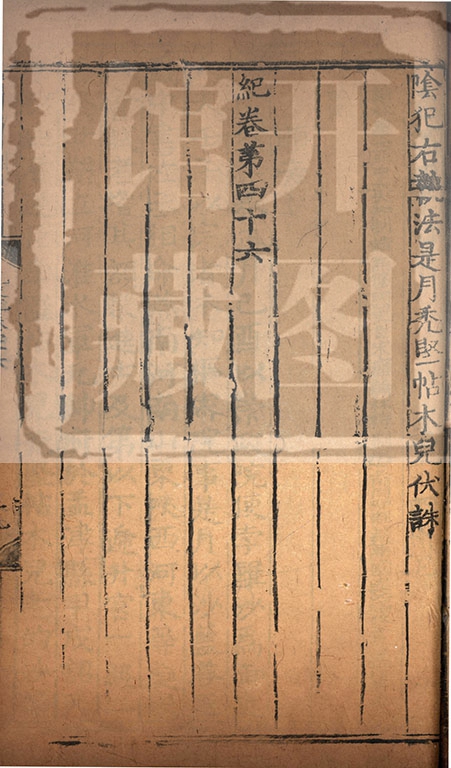 陰犯右執法是月禿堅帖木兒伏誅
紀卷第四十六
开图
馆藏